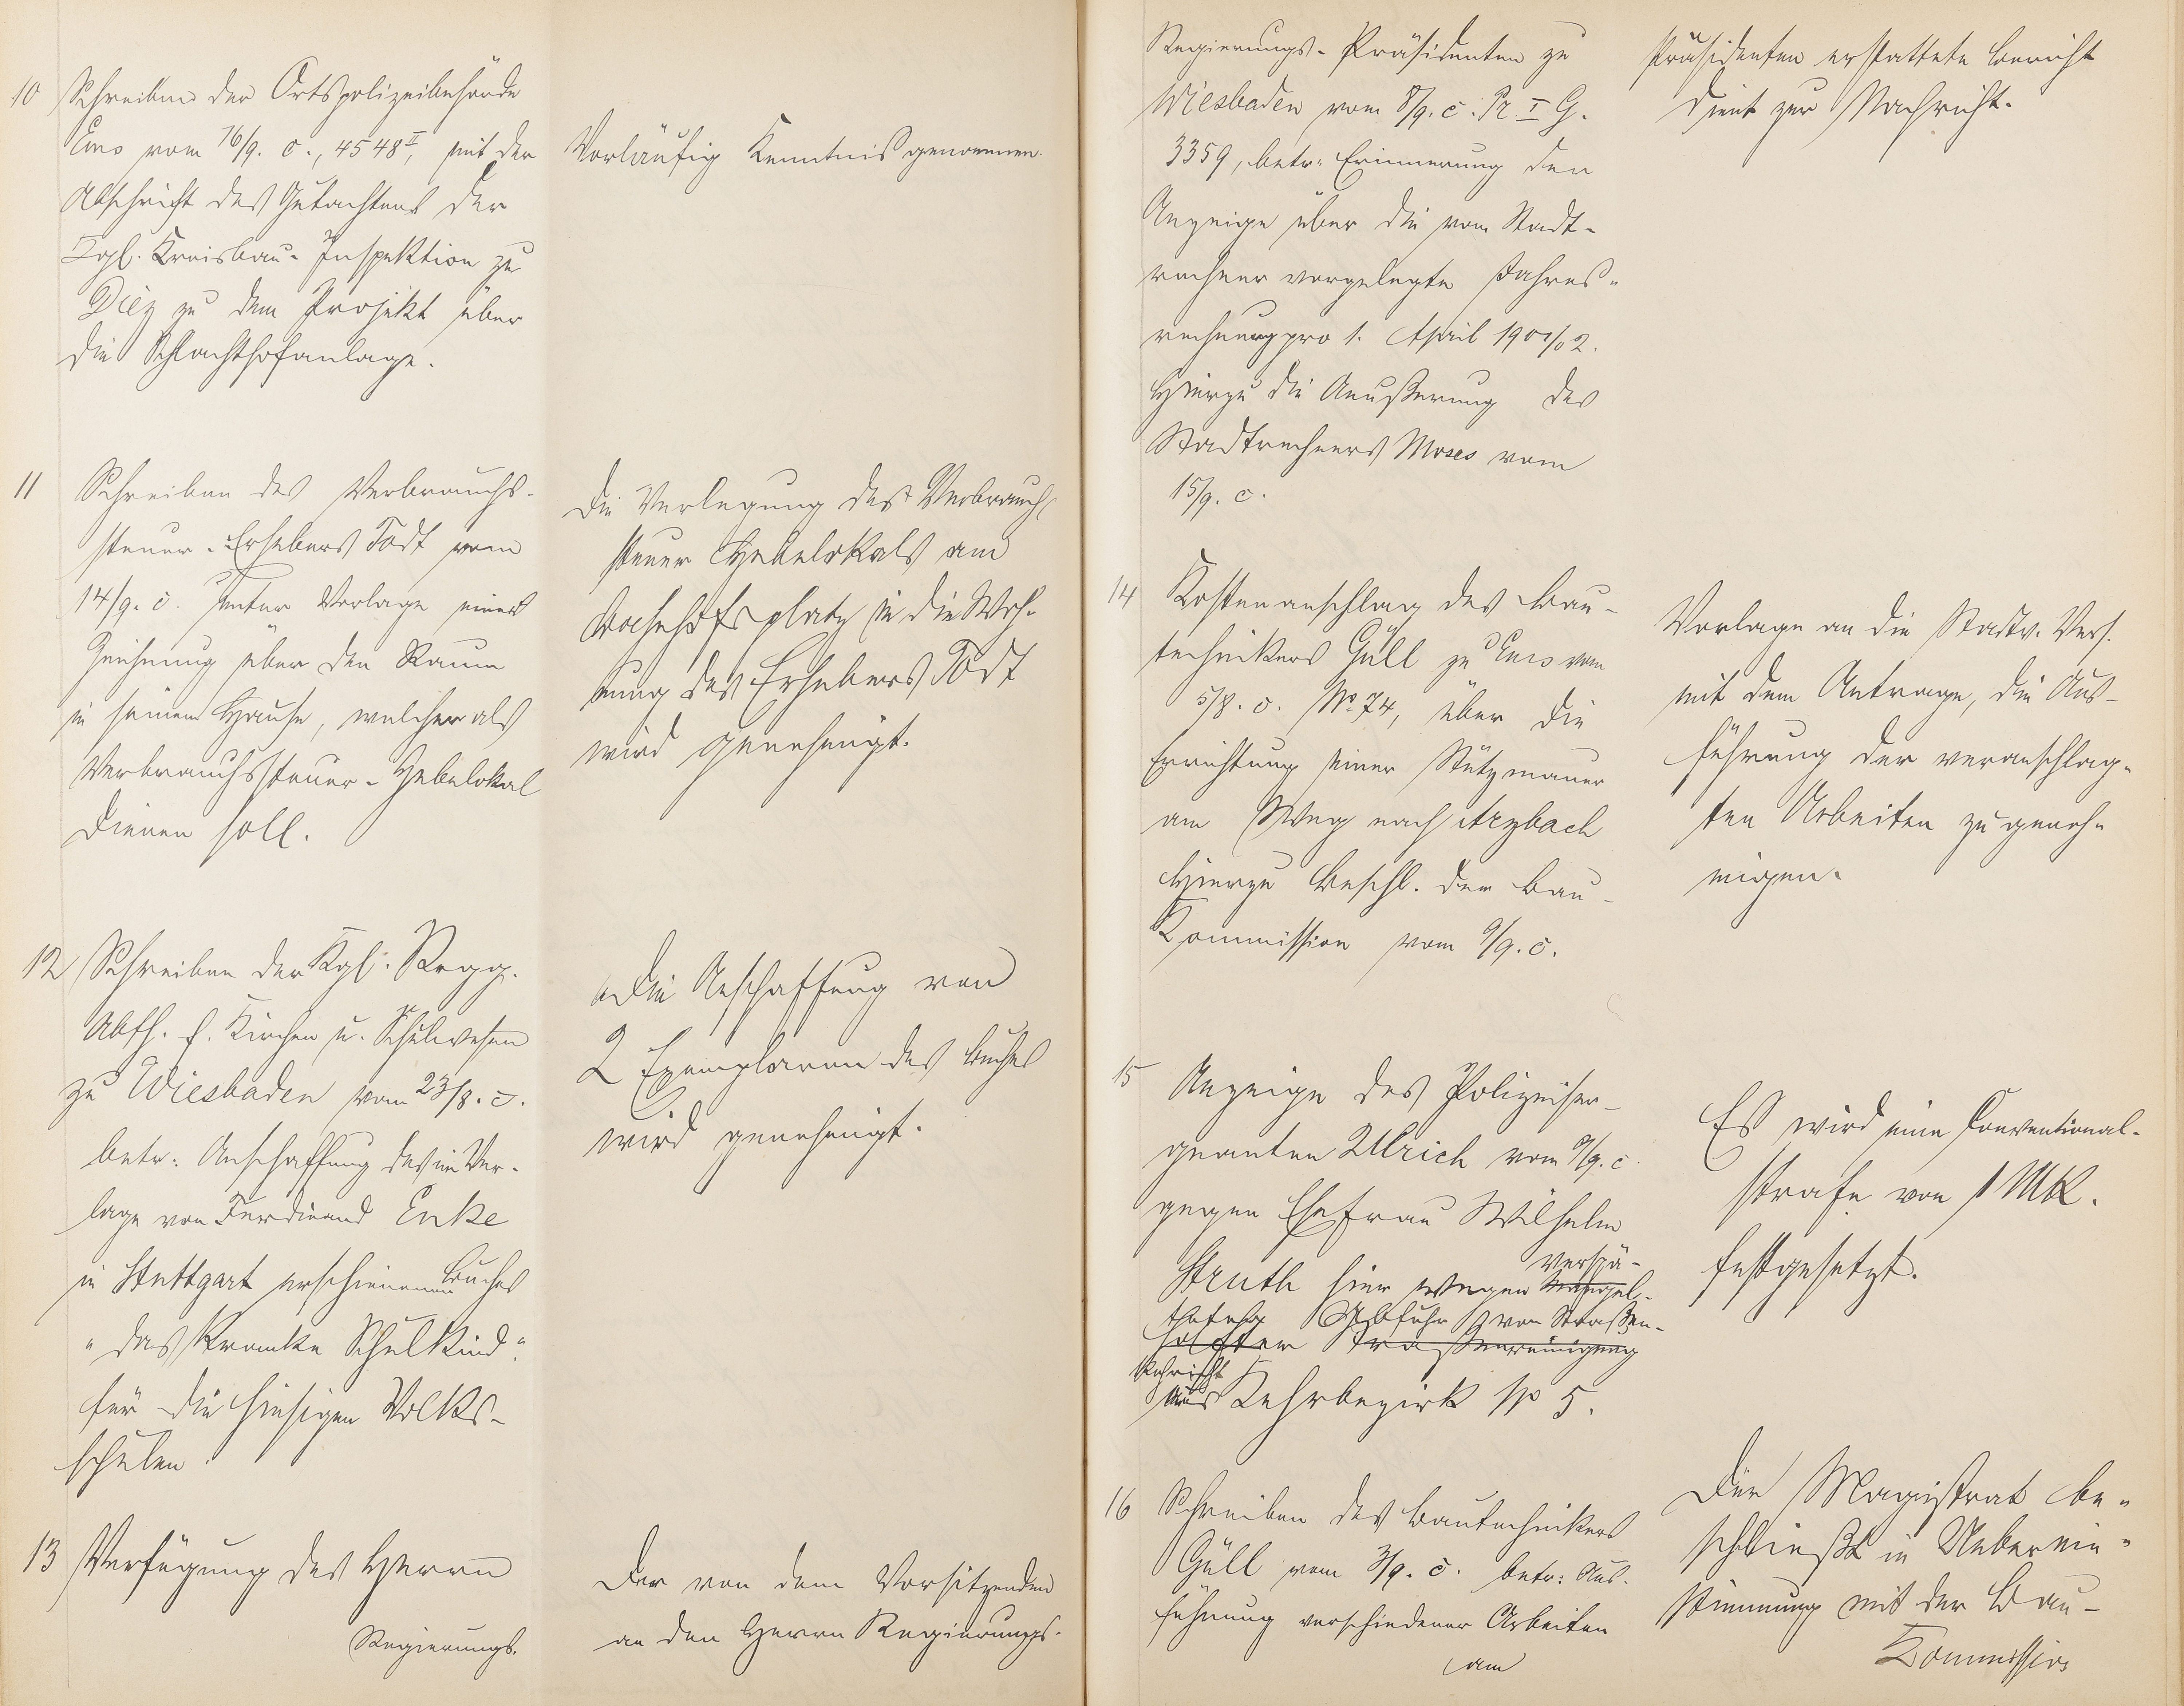 10 Schreiben der Ortspolizeibehörde
Ems vom 16/9. c., 4548 II, mit der
Abschrift des Gutachtens der
Kgl. Kreisbau-Inspektion zu
Diez zu dem Projekt über
die Schlachthofanlage.
Vorläufig Kenntnis genommen.
11 Schreiben des Verbrauchs-
steuer-Erhebers Todt vom
14/9. c. unter Vorlage einer
Zeichnung über den Raum
in seinem Hause, welcher als
Verbrauchssteuer-Hebelokal
dienen soll.
Die Verlegung des Verbrauch-
steuer Hebelokals am
Bahnhofsplatz in die Woh-
nung des Erhebers Todt
wird genehmigt.
12 Schreiben der Kgl. Regg.
Abth. f. Kirchen u. Schulwesen
zu Wiesbaden vom 23/8. c.
betr: Anschaffung des im Ver-
lage von Ferdinand Enke
in Stuttgart erschienenen Buches
"das kranke Schulkind"
für die hiesigen Volks-
schulen.
Die Anschaffung von
2 Exemplaren des Buches
wird genehmigt.
13 Verfügung des Herrn
Regierungs-
Der von dem Vorsitzenden
an den Herrn Regierungs-
Regierungs-Präsidenten zu
Wiesbaden vom 8/9. c. Pr. I G.
3359, betr: Erinnerung den
Anzeige über die vom Stadt-
rechner vorgelegte Jahres-
rechnung pro 1. April 1901/02.
Hierzu die Aeußerung des
Stadtrechners Moses vom
15/9. c.
Präsidenten erstattete Bericht
dient zur Nachricht.
14 Kostenanschlag des Bau-
technikers Güll zu Ems vom
5/8. c. No 74, über die
Errichtung einer Stützmauer
am Weg nach Arzbach
Hierzu Beschl. der Bau-
Kommission vom 9/9. c.
Vorlage an die Stadtv. Vers.
mit dem Antrage, die Aus-
führung der veranschlag-
ten Arbeiten zu geneh-
migen.
15 Anzeige des Polizeiser-
geanten Ulrich vom 9/9. c.
gegen Ehefrau Wilhelm
verspä-
Struth hier wegen mangel-
theter Abfuhr von Straßen-
hafter Straßenreinigung
kehricht
aus Kehrbezirk No 5.
Es wird eine Conventional-
strafe von 1 Mk.
festgesetzt.
16 Schreiben des Bautechnikers
Güll vom 3/9. c. betr: Aus-
führung verschiedener Arbeiten
am
Der Magistrat be-
schließt in Ueberein-
stimmung mit der Bau-
Kommission